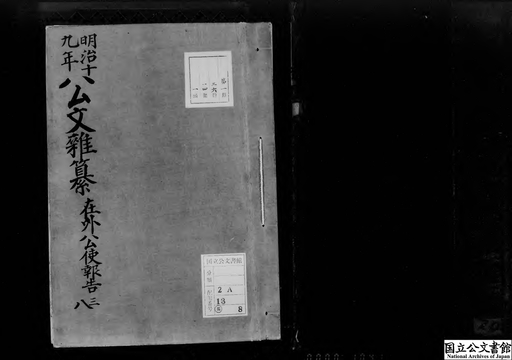 明治十
九年
公文雑纂
在外公使報告
三
八
国立公文書館
2 A
13
8
国立公文書館
National Archives of Japan